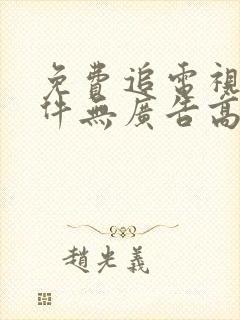 免費追電視
件無廣告高
趙光義